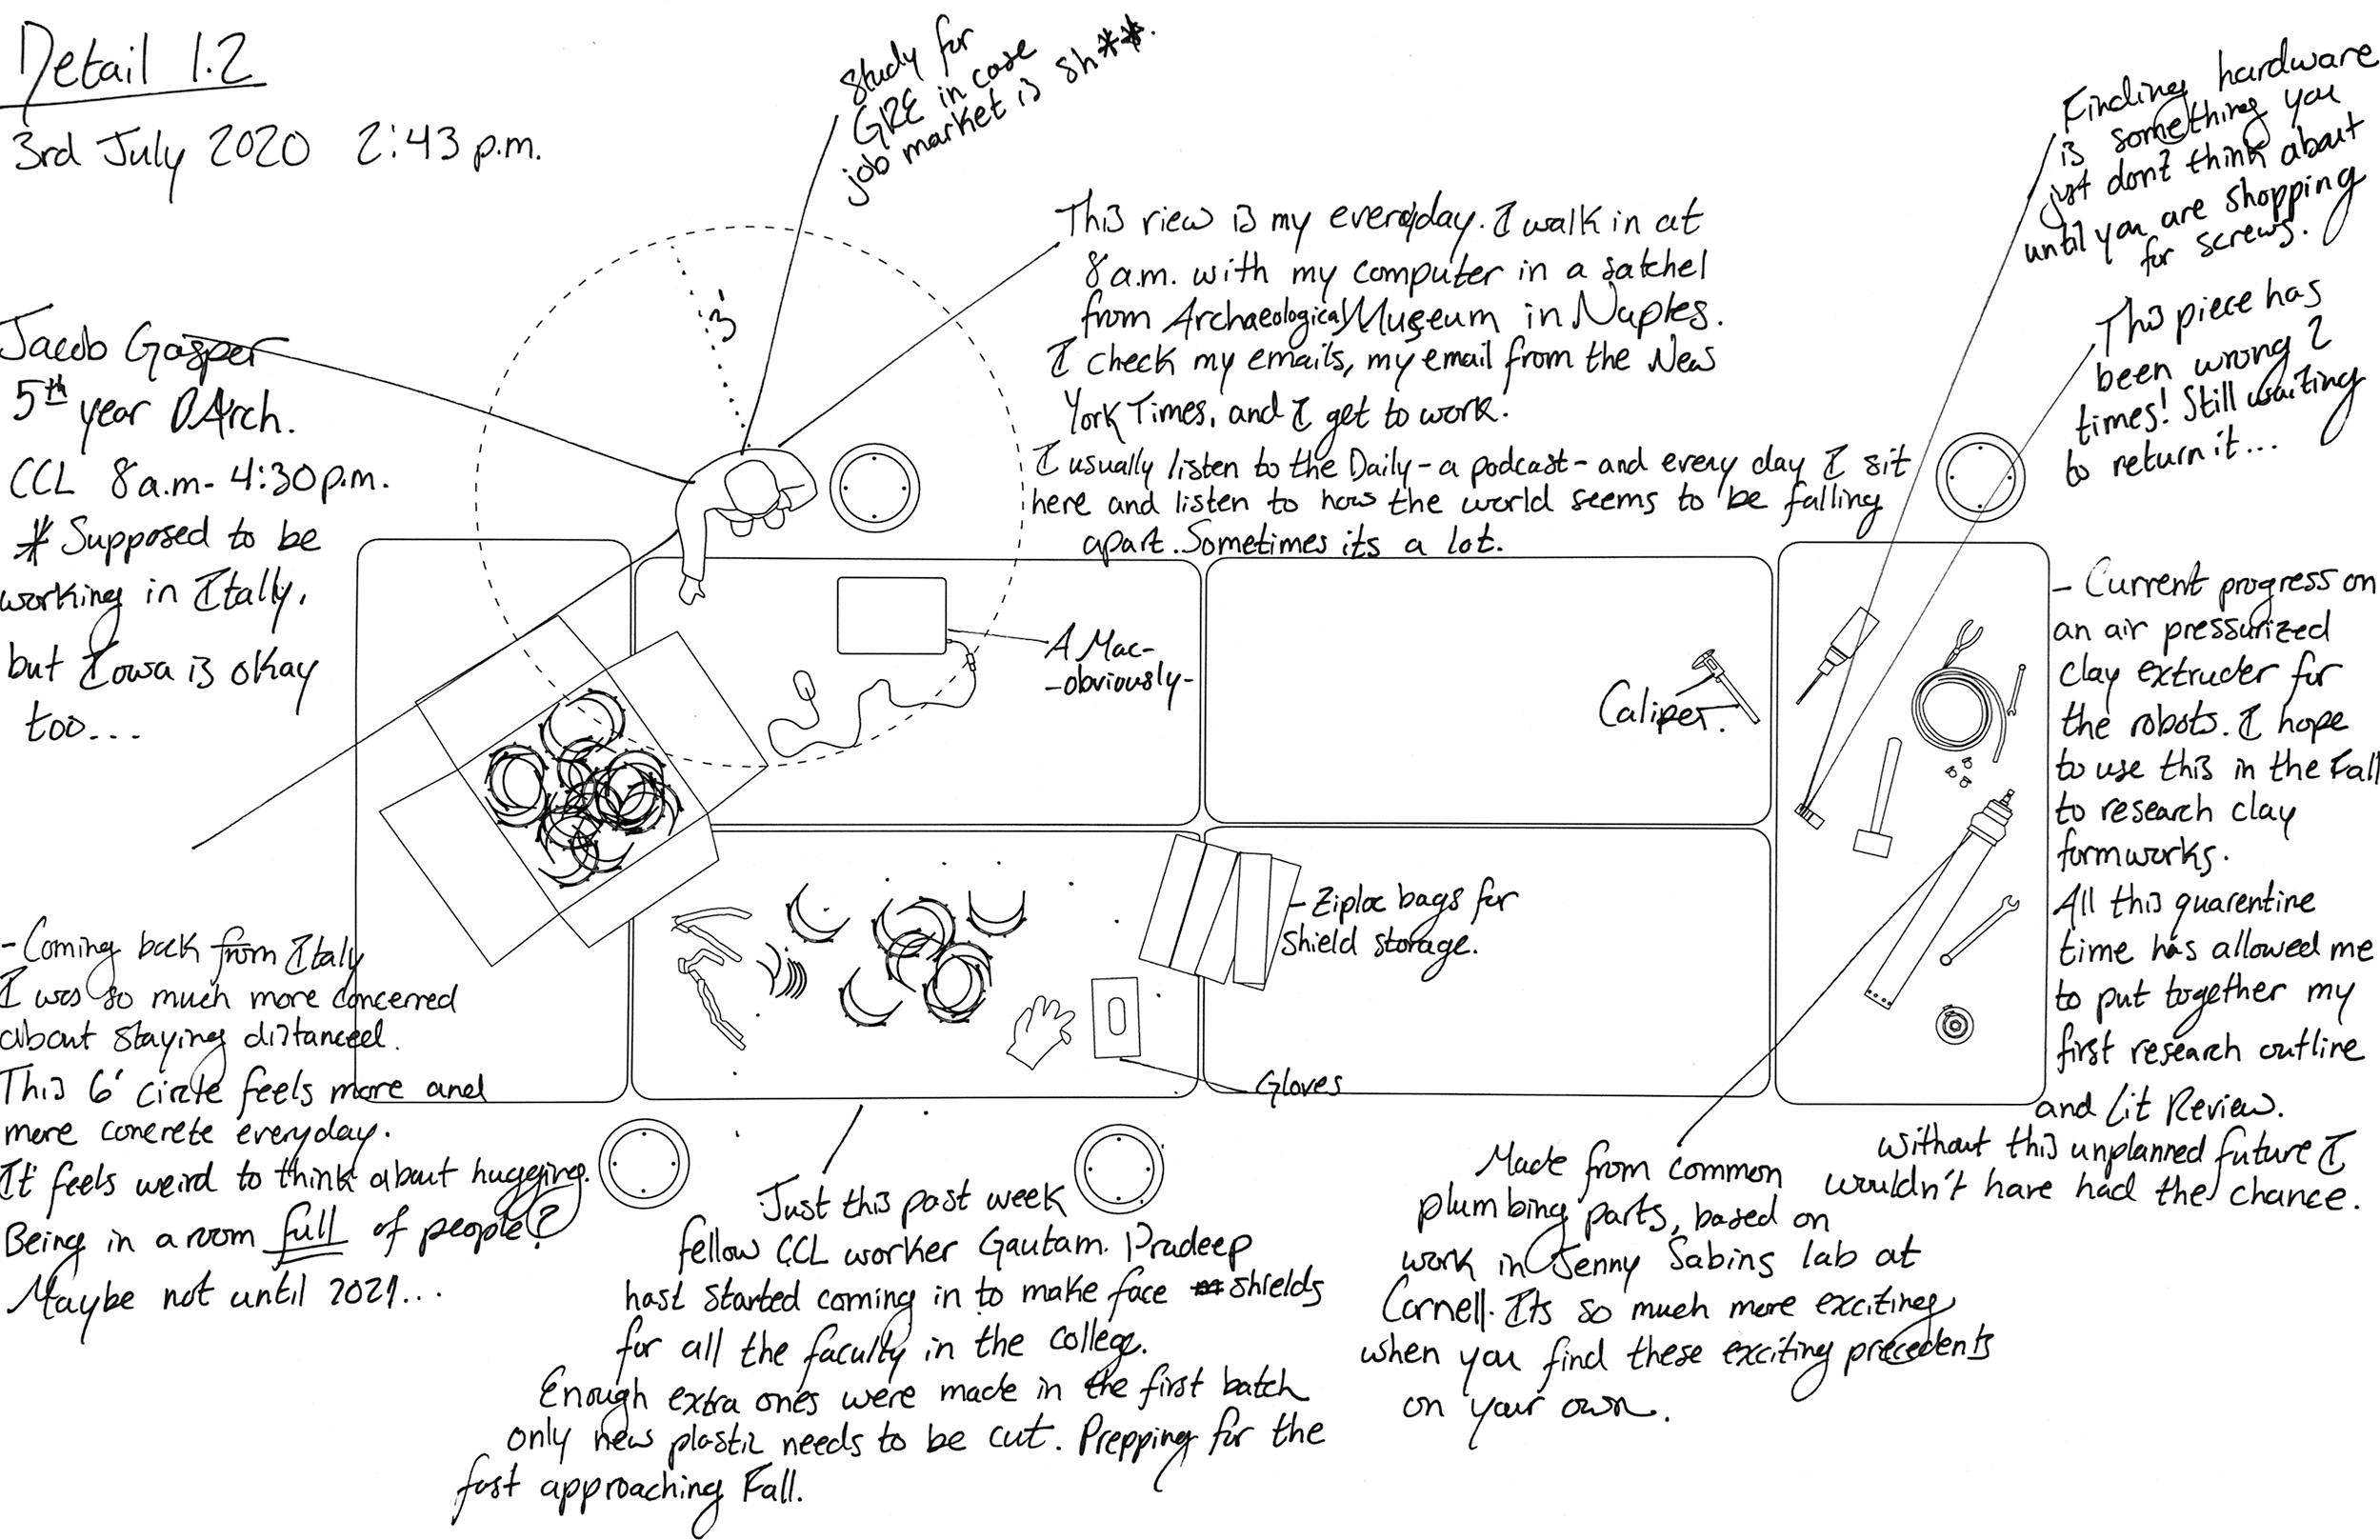 Detail 1.2
3rd July 2020 2:43 p.m.
Study for
GRE in case
job market is sh**.
Finding hardware
is something you
just don't think about
until you are shopping
for screws.
This piece has
been wrong 2
times! Still waiting
to return it...
This view is my everyday. I walk in at
8 a.m. with my computer in a satchel
from Archaeological Museum in Naples.
I check my emails, my email from the New
York Times, and I get to work.
I usually listen to the Daily - a podcast - and every day I sit
here and listen to how the world seems to be falling
apart. Sometimes its a lot.
3'
Jacob Gasper
5th year BArch.
CCL 8 a.m - 4:30 p.m.
* Supposed to be
working in Itally,
but Iowa is okay
too...
A Mac-
-obviously-
Caliper.
- Current progress on
an air pressurized
clay extruder for
the robots. I hope
to use this in the Fall
to research clay
formworks.
All this quarentine
time has allowed me
to put together my
first research outline
and Lit Review.
Without this unplanned future I
wouldn't have had the chance.
- Ziploc bags for
shield storage.
Gloves
- Coming back from Italy
I was so much more concerned
about staying distanced.
This 6' circle feels more and
more concrete everyday.
It feels weird to think about hugging.
Being in a room full of people?
Maybe not until 2021...
Just this past week
fellow CCL worker Gautam Pradeep
hast started coming in to make face shields
for all the faculty in the college.
Enough extra ones were made in the first batch
only new plastic needs to be cut. Prepping for the
fast approaching Fall.
Made from common
plumbing parts, based on
work in Jenny Sabins lab at
Cornell. Its so much more exciting
when you find these exciting precedents
on your own.